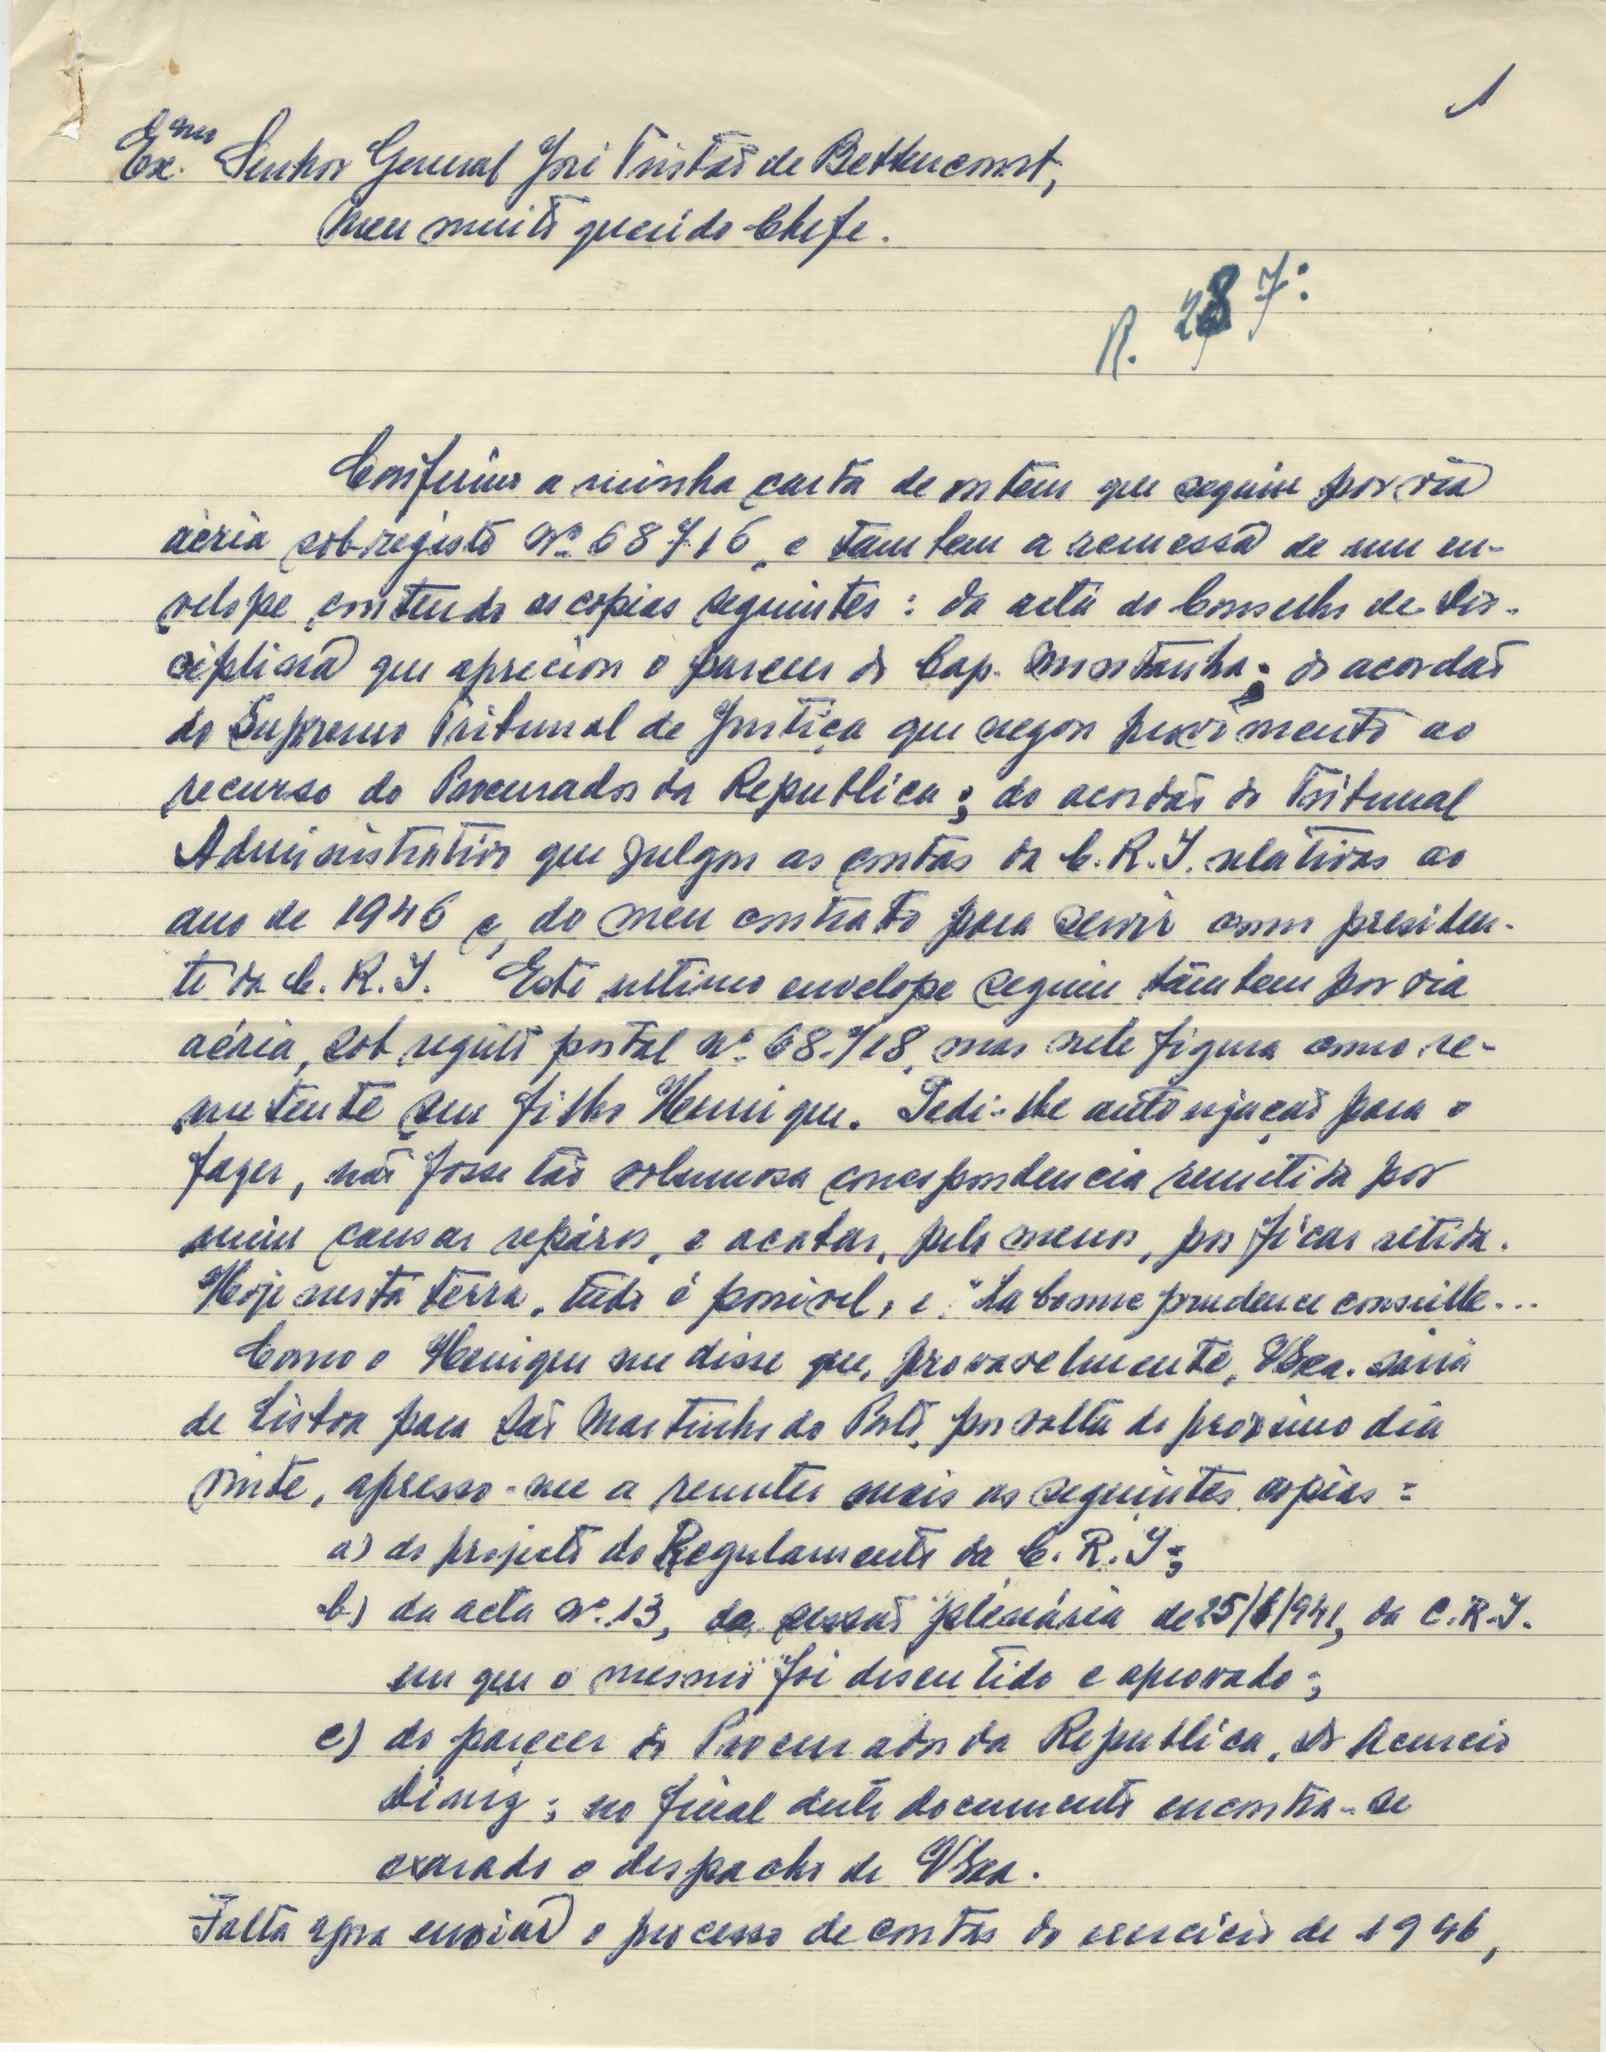 1
Ex.mo Senhor General José Tristão de Bettencourt,
Meu muito querido Chefe.
R. 28/7:
Confirmo a minha carta de ontem que seguiu por via
aéria sob registo Nº 68716, e tambem a remessa de um en-
velope contendo as copias seguintes: da acta do Conselho de Dis-
ciplina que apreciou o parecer do Cap. Montanha; do acordão
do Supremo Tribunal de Justiça que negou provimento ao
recurso do Procurador da Republica; do acordão do Tribunal
Administrativo que julgou as contas da C. R. I. relativas ao
ano de 1946 e, do meu contrato para servir como presiden-
te da C. R. I. Este ultimo envelope seguiu tambem por via
aéria, sob registo postal Nº 68.718, mas nele figura como re-
metente seu filho Henrique. Pedi-lhe autorização para o
fazer, não fosse tão volumosa correspondencia remetida por
mim causar reparos, e acabar, pelo menos, por ficar retida.
Hoje nesta terra, tudo é possivel, e "La bonne prudence conseille...
Como o Henrique me disse que, provavelmente, VExa. sairia
de Lisboa para São Martinho do Porto, por volta do proximo dia
vinte, apresso-me a remeter mais as seguintes copias:
a) do projecto do Regulamento da C. R. I.;
b) da acta Nº 13, da sessão plenária de 25/6/941, da C. R. I.
em que o mesmo foi discutido e aprovado;
c) do parecer do Procurador da Republica, Dr Acurcio
Diniz; no final deste documento encontra-se
exarado o despacho de VExa.
Falta agora enviar o processo de contas do exercicio de 1946,